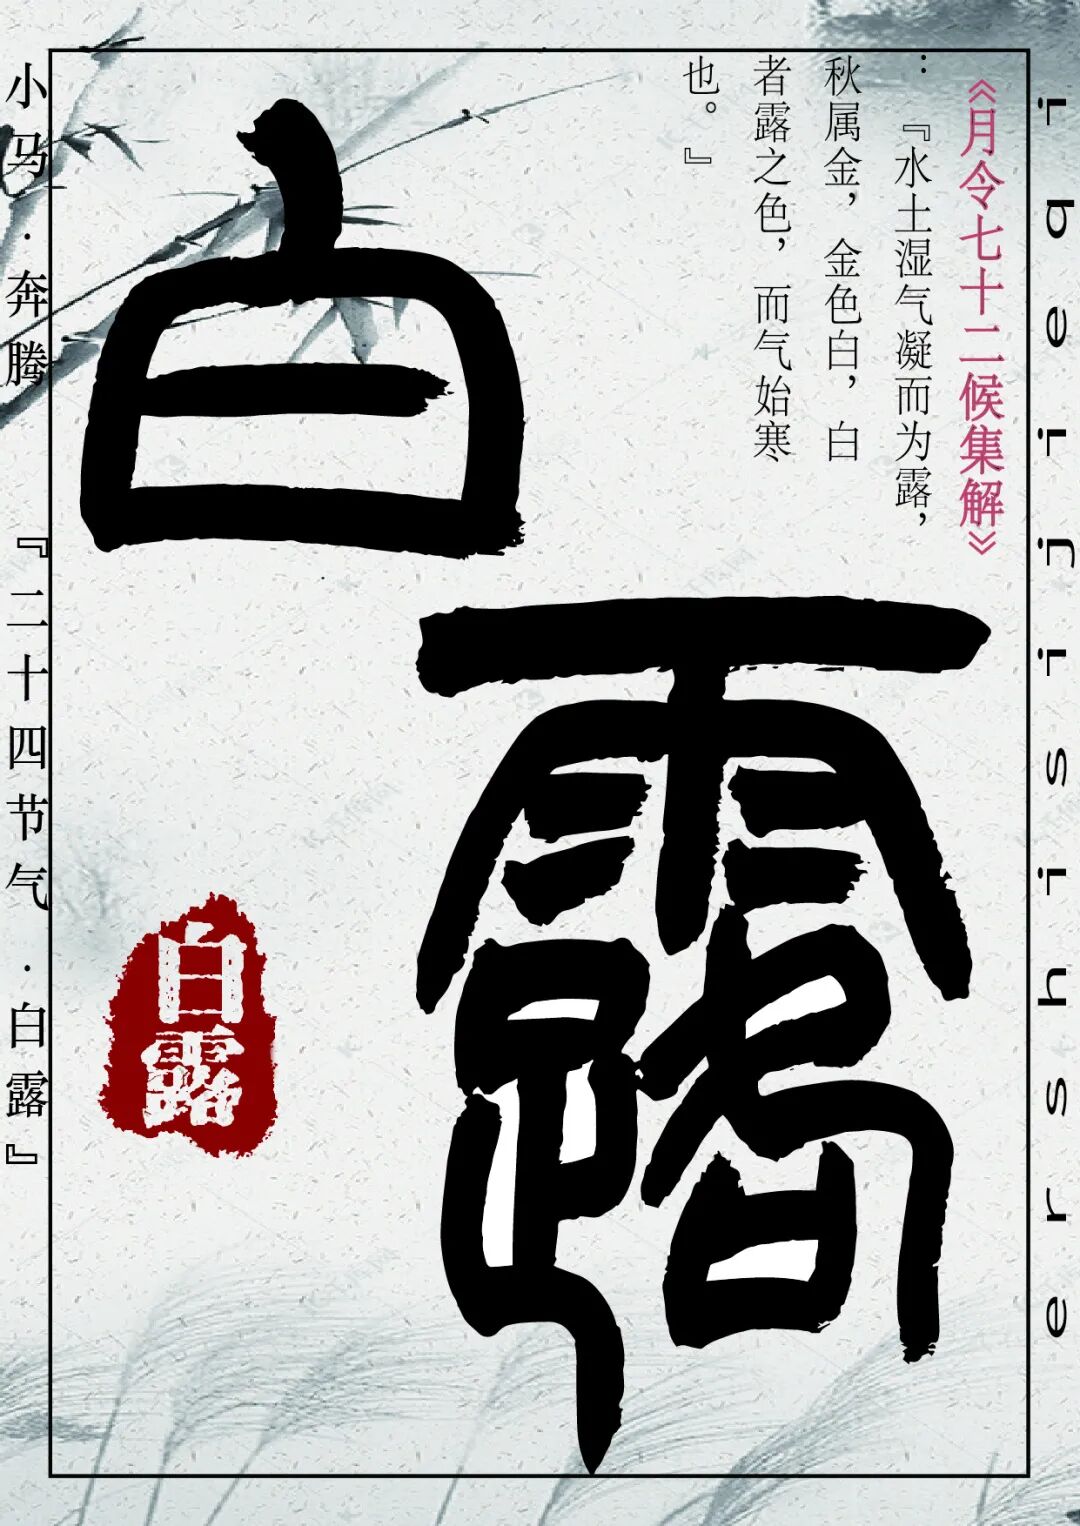 《月令七十二候集解》
：『水土湿气凝而为露，
秋属金，金色白，白
者露之色，而气始寒
也。』
白
露
小马·奔腾『二十四节气·白露』
白
露
ershisijieqi